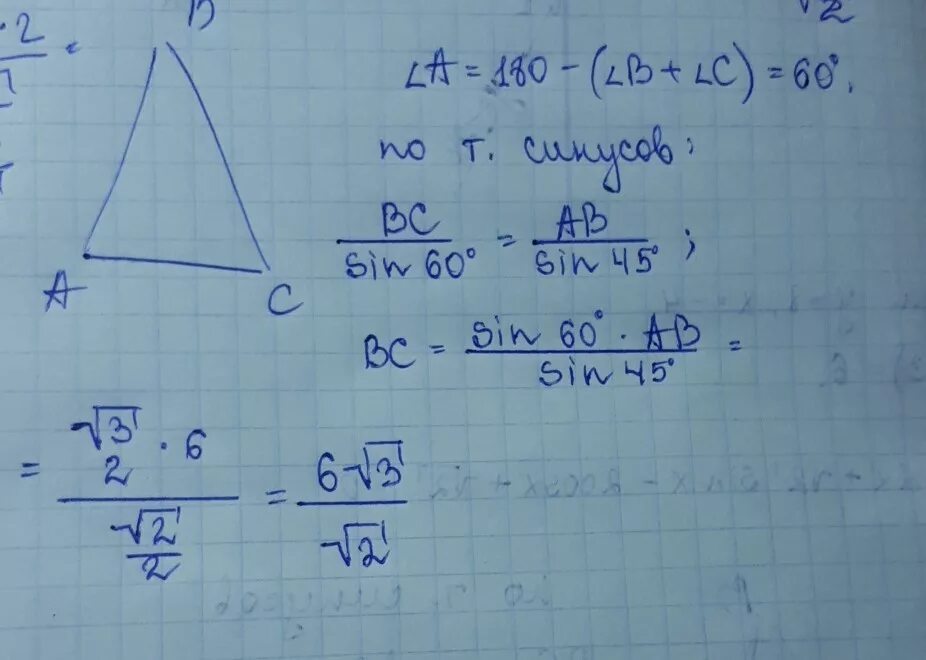 B
∠A = 180 - (∠B + ∠C) = 60°.
по т. синусов:
BC/sin 60° = AB/sin 45° ;
A
C
BC = sin 60° · AB/sin 45° =
= (√3/2 · 6)/(√2/2) = 6√3/√2